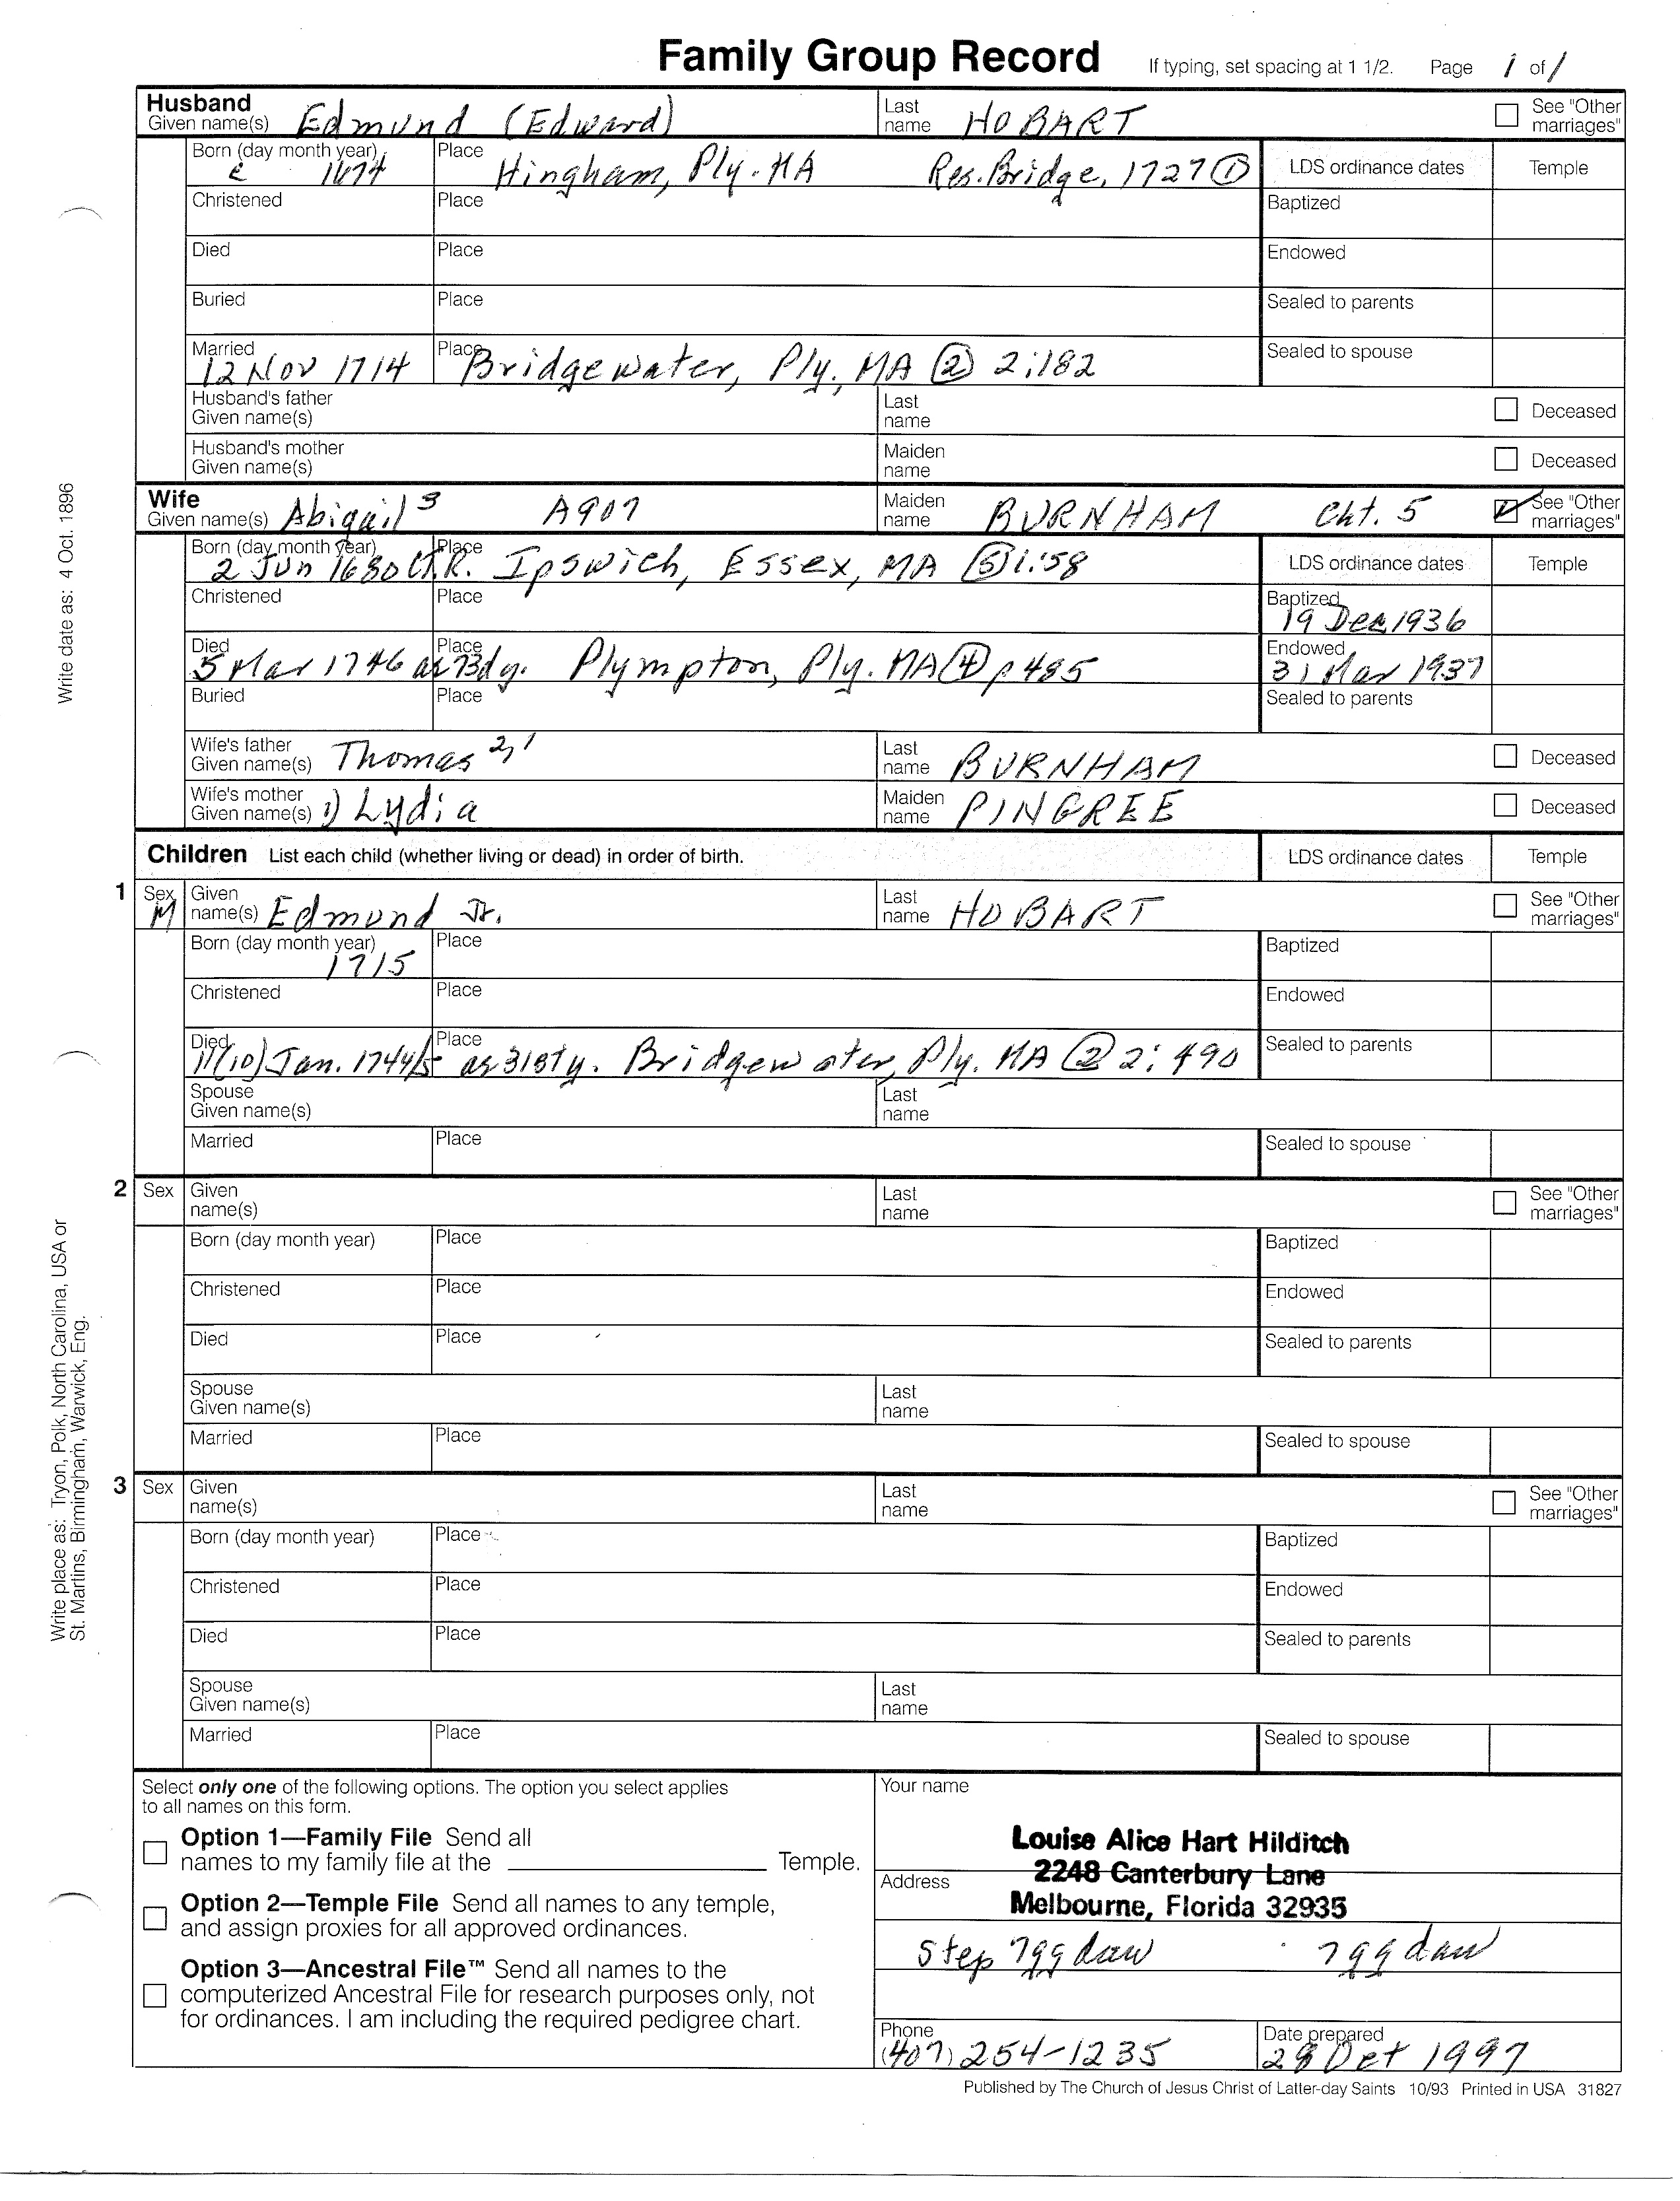 Family Group Record If typing, set spacing at 1 1/2. Page 1 of 1
Husband
Given name(s) Edmund (Edward) Last name HOBART See "Other marriages"
Born (day month year) c 1674 Place Hingham, Ply. MA Res. Bridge, 1727 ① LDS ordinance dates Temple
Christened Place Baptized
Died Place Endowed
Buried Place Sealed to parents
Married 12 Nov 1714 Place Bridgewater, Ply., MA ② 2:182 Sealed to spouse
Husband's father Given name(s) Last name Deceased
Husband's mother Given name(s) Maiden name Deceased
Wife
Given name(s) Abigail 3 A907 Maiden name BURNHAM Cht. 5 See "Other marriages"
Born (day month year) 2 Jun 1680 Ct.R. Place Ipswich, Essex, MA ⑤ 1:58 LDS ordinance dates Temple
Christened Place Baptized 19 Dec 1936
Died 5 Mar 1746 ae 73dy. Place Plympton, Ply. MA ④ p485 Endowed 31 Mar 1937
Buried Place Sealed to parents
Wife's father Given name(s) Thomas 2,1 Last name BURNHAM Deceased
Wife's mother Given name(s) 1) Lydia Maiden name PINGREE Deceased
Children List each child (whether living or dead) in order of birth. LDS ordinance dates Temple
1 Sex M Given name(s) Edmund Jr. Last name HOBART See "Other marriages"
Born (day month year) 1715 Place Baptized
Christened Place Endowed
Died 11(10) Jan. 1744/5 ae 31sty. Place Bridgewater, Ply. MA ② 2:490 Sealed to parents
Spouse Given name(s) Last name
Married Place Sealed to spouse
2 Sex Given name(s) Last name See "Other marriages"
Born (day month year) Place Baptized
Christened Place Endowed
Died Place Sealed to parents
Spouse Given name(s) Last name
Married Place Sealed to spouse
3 Sex Given name(s) Last name See "Other marriages"
Born (day month year) Place Baptized
Christened Place Endowed
Died Place Sealed to parents
Spouse Given name(s) Last name
Married Place Sealed to spouse
Write date as: 4 Oct. 1896
Write place as: Tryon, Polk, North Carolina, USA or
St. Martins, Birmingham, Warwick, Eng.
Select only one of the following options. The option you select applies
to all names on this form.
Option 1—Family File Send all
names to my family file at the Temple.
Option 2—Temple File Send all names to any temple,
and assign proxies for all approved ordinances.
Option 3—Ancestral File™ Send all names to the
computerized Ancestral File for research purposes only, not
for ordinances. I am including the required pedigree chart.
Your name
Louise Alice Hart Hilditch
Address 2248 Canterbury Lane
Melbourne, Florida 32935
Step 7gg dau 7gg dau
Phone (407) 254-1235 Date prepared 28 Oct 1997
Published by The Church of Jesus Christ of Latter-day Saints 10/93 Printed in USA 31827